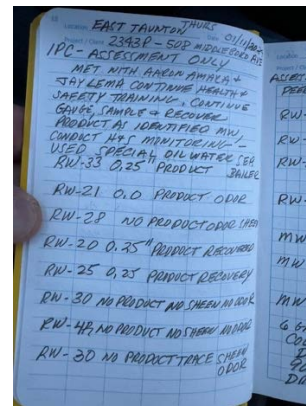 Location EAST TAUNTON THURS Date 01/11/20
Project / Client 2343P - 508 MIDDLEBORO AVE
IPC-ASSESSMENT ONLY
MET WITH AARON AMAYA &
JAY LEMA CONTINUE HEALTH &
SAFETY TRAINING. CONTINUE
GAUGE, SAMPLE & RECOVER
PRODUCT AS IDENTIFIED MW,
CONDUCT H&S MONITORING -
USED SPECIAL OIL WATER SEA
BAILER
RW-33 0.25" PRODUCT
RW-21 0.0 PRODUCT ODOR
RW-28 NO PRODUCT ODOR SHEEN
RW-20 0.25" PRODUCT RECOVERED
RW-25 0,25 PRODUCT RECOVERY
RW-30 NO PRODUCT NO SHEEN NO ODOR
RW-4R, NO PRODUCT NO SHEEN NO ODOR
RW-30 NO PRODUCT TRACE SHEEN
ODOR
Project / C
RW-
RW-
RW-
MW
MW
MW